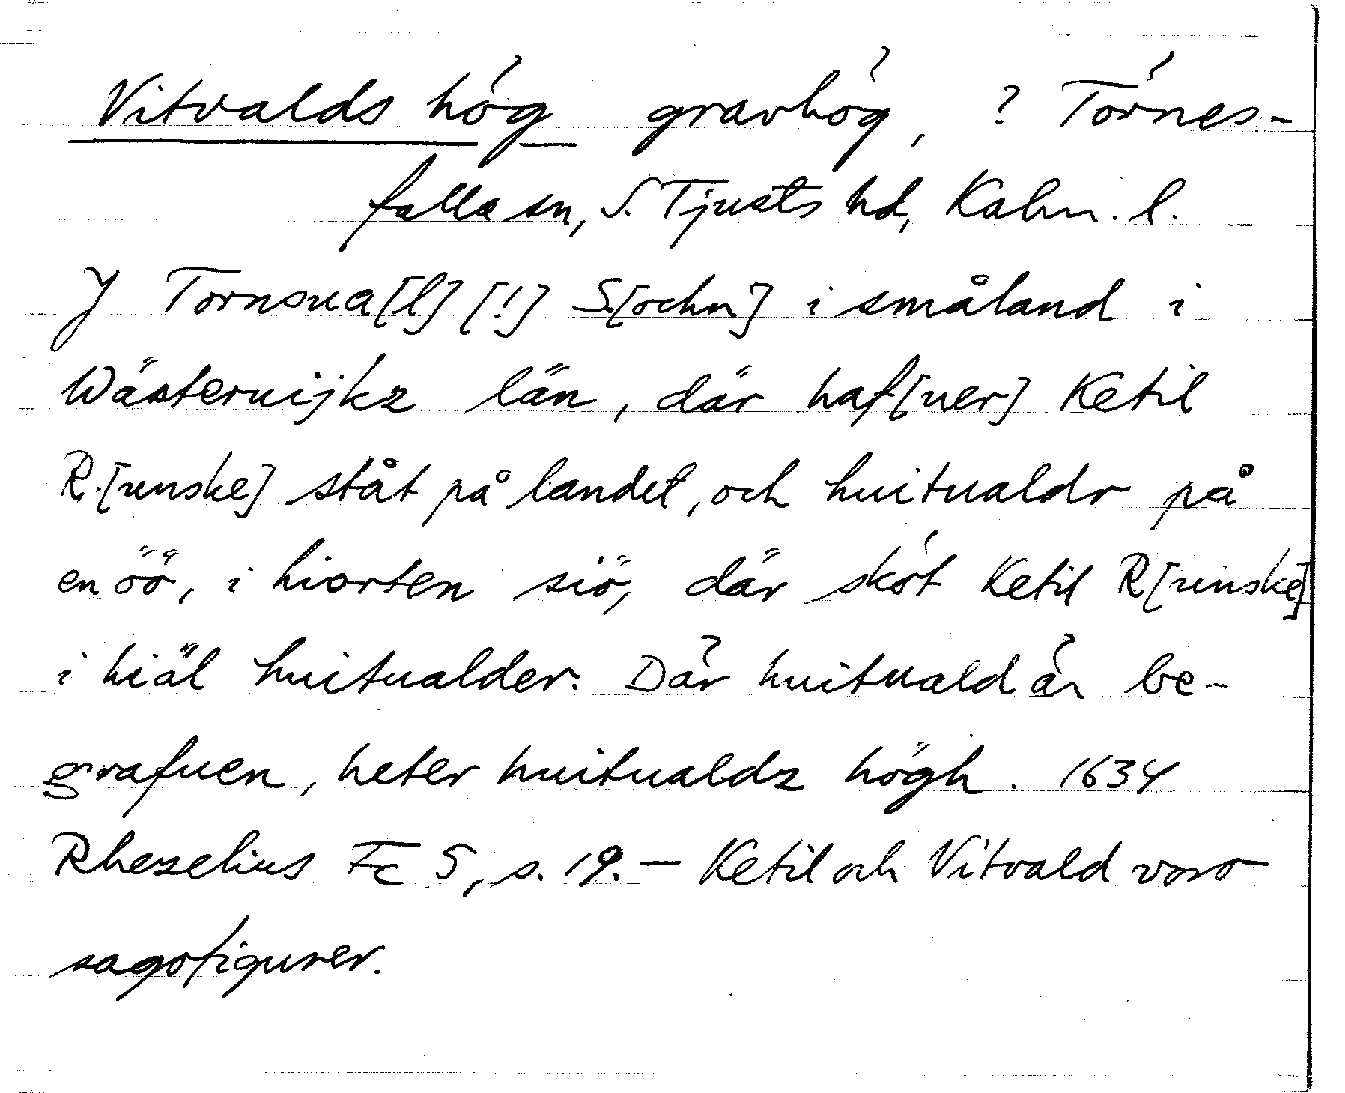 Vitvalds hög gravhög, ? Törnes-
falla sn, S. Tjusts hd, Kalm. l.
J Tornsua[l] [!] S.[ochn] i småland i
Wästeruijkz län, där haf[uer] Ketil
R.[unske] ståt på landet, och huitualdr på
en öö, i hiorten siö, där sköt Ketil R[unske]
i hiäl huitualder. Där huituald är be-
grafuen, heter huitualdz högh. 1634
Rhezelius Fc 5, s. 19. — Ketil och Vitvald voro
sagofigurer.